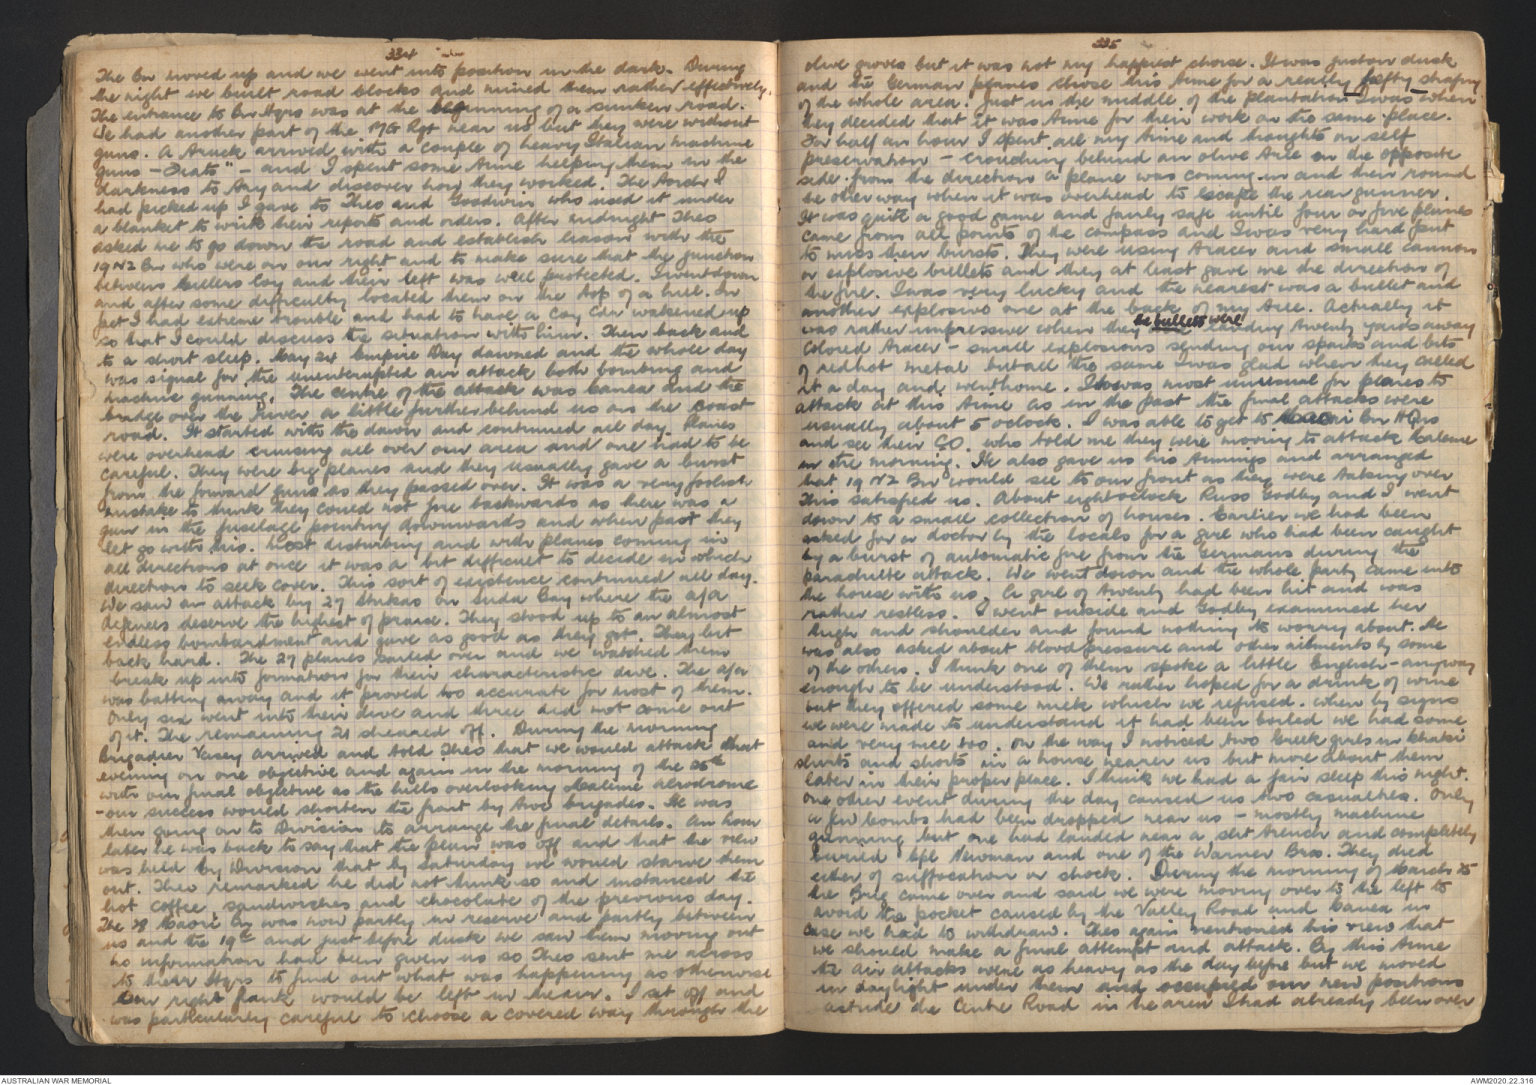 334
The Bn moved up and we went into position in the dark. During
the night we built road blocks and mined them rather effectively.
The entrance to Bn Hqrs was at the beginning of a sunken road.
We had another part of the MG Rgt near us but they were without
guns. A truck arrived with a couple of heavy Italian machine
guns - "Fiats" - and I spent some time helping them in the
darkness to try and discover how they worked. The torch I
had picked up I gave to Theo and Goodwin who used it under
a blanket to write their reports and orders. After midnight Theo
asked me to go down the road and establish liason with the
19 NZ Bn who were on our right and to make sure that the junction
between Millers Coy and their left was well protected. I went down
and after some difficulty located them on the top of a hill. In
fact I had extreme trouble and had to have a Coy Cdr wakened up
so that I could discuss the situation with him. Then back and
to a short sleep. May 24 Empire Day dawned and the whole day
was signal for the uninterupted air attack both bombing and
machine gunning. The centre of the attack was Canea and the
bridge over the river a little further behind us on the coast
road. It started with the dawn and continued all day. Planes
were overhead cruising all over our area and one had to be
careful. They were big planes and they usually gave a burst
from the forward guns as they passed over. It was a very foolish
mistake to think they could not fire backwards as there was a
gun in the fuselage pointing downwards and when past they
let go with this. Most disturbing and with planes coming in
all directions at once it was a bit difficult to decide in which
direction to seek cover. This sort of existence continued all day.
We saw an attack by 27 Stukas on Suda Bay where the a/a
defences deserve the highest of praise. They stood up to an almost
endless bombardment and gave as good as they got. They hit
back hard. The 27 planes sailed over and we watched them
break up into formation for their characteristic dive. The a/a
was batting away and it proved too accurate for most of them.
Only six went into their dive and three did not come out
of it. The remaining 21 sheared off. During the morning
Brigadier Vasey arrived and told Theo that we would attack that
evening on one objective and again in the morning of the 25th
with our final objective as the hills overlooking Maleme aerodrome
- our success would shorten the front by two brigades. He was
then going on to Division to arrange the final details. An hour
later he was back to say that the plan was off and that the view
was held by Division that by Saturday we would starve them
out. Theo remarked he did not think so and instanced the
hot coffee sandwiches and chocolate of the previous day.
The 28 Maori Bn was now partly in reserve and partly between
us and the 19th and just before dusk we saw them moving out
no information had been given us so Theo sent me across
to their Hqrs to find out what was happening as otherwise
our right flank would be left in the air. I set off and
was particularly careful to choose a covered way through the
335
olive groves but it was not my happiest choise. It was just on dusk
and the German planes chose this time for a really hefty strafing
of the whole area. Just in the middle of the plantation I was when
they decided that it was time for their work on the same place.
For half an hour I spent all my time and thoughts on self
preservation - crouching behind an olive tree on the opposite
side from the direction a plane was coming in and then round
the other way when it was overhead to escape the rear gunner.
It was quite a good game and fairly safe until four or five planes
came from all points of the compass and I was very hard put
to miss their bursts. They were using tracer and small cannon
or explosive bullets and they at least gave me the direction of
the fire. I was very lucky and the nearest was a bullet and
another explosive one at the back of my tree. Actually it
was rather impressive when the bullets were landing twenty yards away
colored tracer - small explosions sending our sparks and bits
of redhot metal but all the same I was glad when they called
it a day and went home. It was most unusual for planes to
attack at this time as in the past the final attacks were
usually about 5 oclock. I was able to get to Maori Bn HQrs
and see their CO. who told me they were moving to attack Maleme
in the morning. He also gave us his timings and arranged
that 19 NZ Bn would see to our front as they were taking over
This satisfied us. About eight oclock Russ Godby and I went
down to a small collection of houses. Earlier we had been
asked for a doctor by the locals for a girl who had been caught
by a burst of automatic fire from the Germans during the
parachute attack. We went down and the whole party came into
the house with us. A girl of twenty had been hit and was
rather restless. I went outside and Godby examined her
thigh and shoulder and found nothing to worry about. He
was also asked about blood pressure and other ailments by some
of the others. I think one of them spoke a little English - anyway
enough to be understood. We rather hoped for a drink of wine
but they offered some milk which we refused. When by signs
we were made to understand it had been boiled we had some
and very nice too. On the way I noticed two Greek girls in khaki
shirts and shorts in a house nearer us but more about them
later in their proper place. I think we had a fair sleep this night.
One other event during the day caused us two casualties. Only
a few bombs had been dropped near us - mostly machine
gunning but one had landed near a slit trench and completely
buried Cpl Newman and one of the Warner Bros. They died
either of suffocation or shock. During the morning of March 25
the Brig came over and said we were moving over to the left to
avoid the pocket caused by the Valley Road and Canea in
case we had to withdraw. Theo again mentioned his view that
we should make a final attempt and attack. By this time
the air attacks were as heavy as the day before but we moved
in daylight under them and occupied our new positions
astride the Centre Road in the area I had already been over
AUSTRALIAN WAR MEMORIAL
AWM2020.22.316